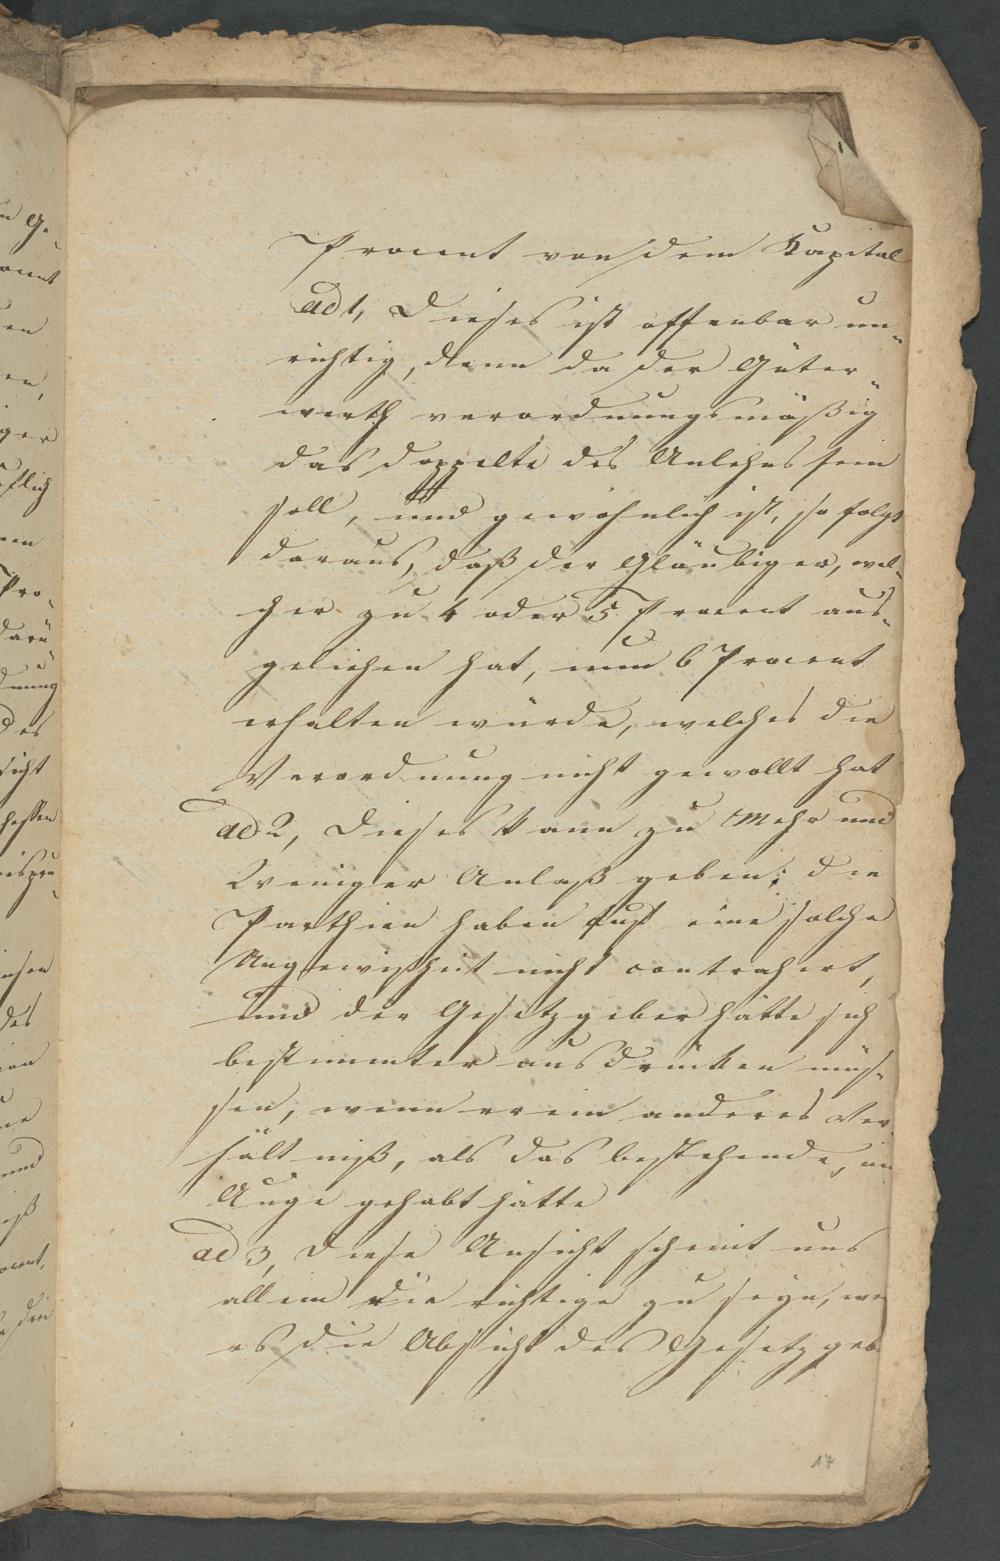 Procent von dem Kapital
ad 1, Dieses ist offenbar un-
richtig, denn da der Güter-
werth verordnungsmäßig
das doppelte des Anlehns sein
soll, und gewöhnlich ist, so folgt
daraus, daß der Gläubiger, wel-
cher zu 4 oder 5 Procent aus-
geliehen hat, nun 6 Procent
erhalten würde, welches die
Verordnung nicht gewollt hat
ad 2, Dieses kann zu Mehr und
Weniger Anlaß geben; die
Parthien haben auf eine solche
Ungewißheit nicht contrahirt,
und der Gesetzgeber hätte sich
bestimmter ausdrücken müs-
sen, wenn er ein anderes Ver
hältniß, als das bestehende, im
Auge gehabt hätte
ad 3, Diese Ansicht scheint uns
allein die richtige zu seyn, we
es die Absicht des Gesetzgeb
17